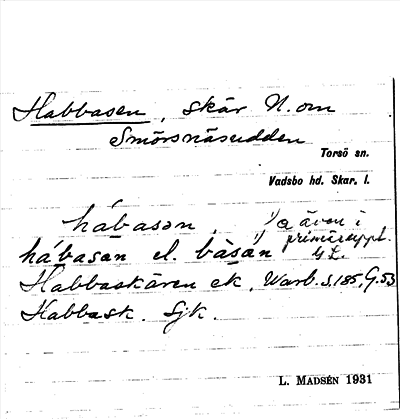 Habbasen, skär N. om
Smörsnäsudden
Torsö sn.
Vadsbo hd. Skar. l.
hábasən, 1/a även i
hábasän el. bàsán 1/ primäruppt.
Habbaskären ek, Warb. s. 185, G. 53
Habbask. Sjk.
L. MADSÉN 1931